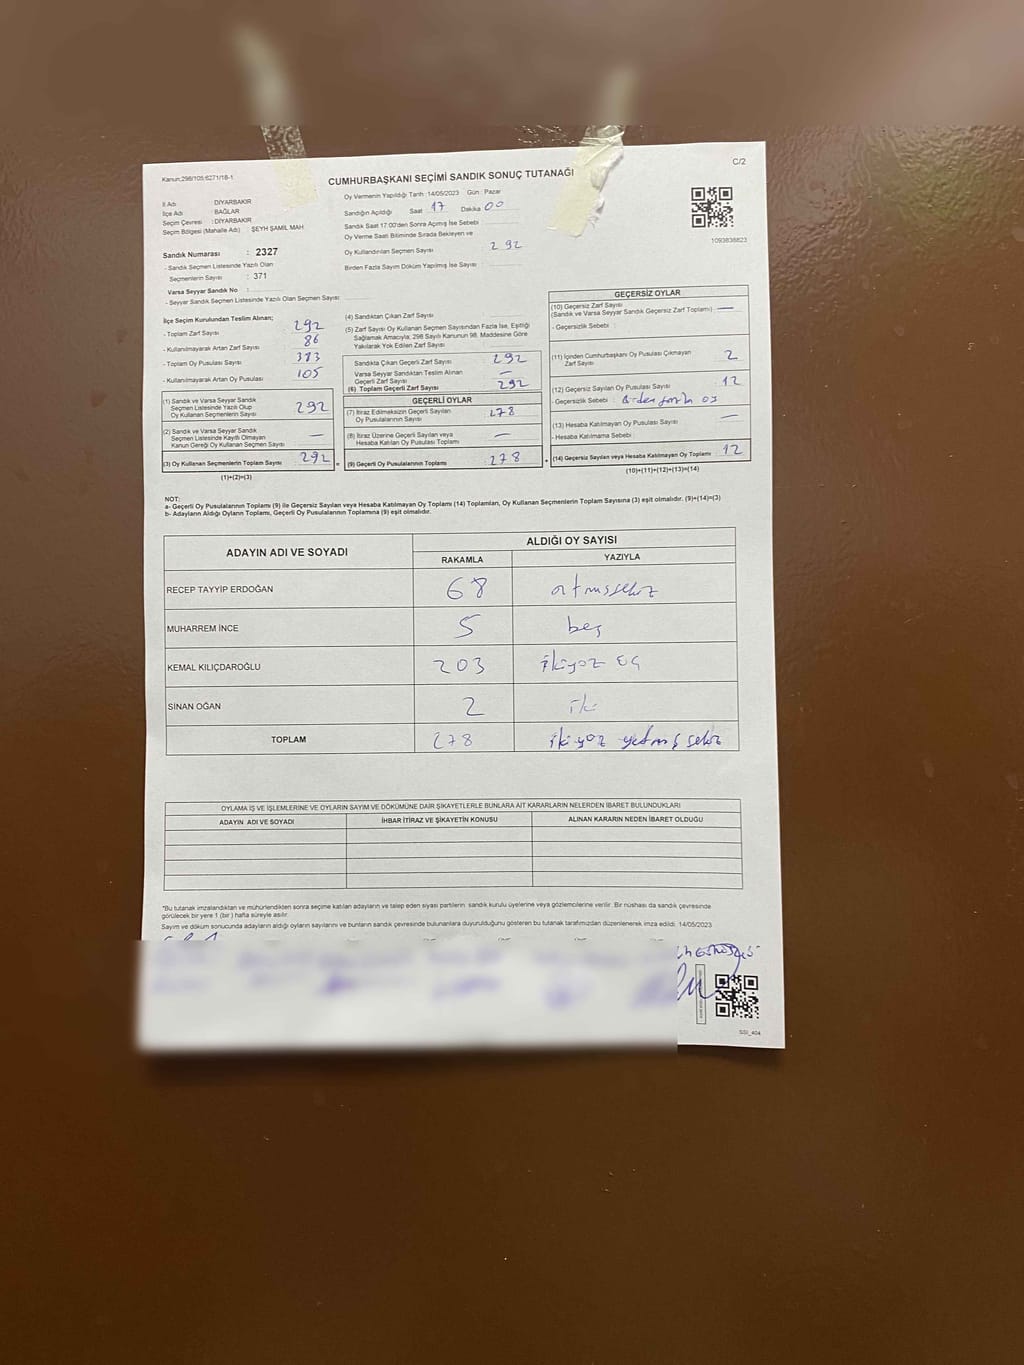 C/2
Kanun:298/105;6271/18-1
CUMHURBAŞKANI SEÇİMİ SANDIK SONUÇ TUTANAĞI
İl Adı : DİYARBAKIR
İlçe Adı : BAĞLAR
Seçim Çevresi : DİYARBAKIR
Seçim Bölgesi (Mahalle Adı) : ŞEYH ŞAMİL MAH
Sandık Numarası : 2327
- Sandık Seçmen Listesinde Yazılı Olan
Seçmenlerin Sayısı : 371
Varsa Seyyar Sandık No :
- Seyyar Sandık Seçmen Listesinde Yazılı Olan Seçmen Sayısı:
Oy Vermenin Yapıldığı Tarih :14/05/2023 Gün : Pazar
Sandığın Açıldığı Saat 17 Dakika 00
Sandık Saat 17:00'den Sonra Açımış İse Sebebi
Oy Verme Saati Bitiminde Sırada Bekleyen ve
Oy Kullandırılan Seçmen Sayısı : 292
Birden Fazla Sayım Döküm Yapılmış İse Sayısı :
1093838823
İlçe Seçim Kurulundan Teslim Alınan;
- Toplam Zarf Sayısı : 292
- Kullanılmayarak Artan Zarf Sayısı : 86
- Toplam Oy Pusulası Sayısı : 383
- Kullanılmayarak Artan Oy Pusulası : 105
(1) Sandık ve Varsa Seyyar Sandık
Seçmen Listesinde Yazılı Olup
Oy Kullanan Seçmenlerin Sayısı : 292
(2) Sandık ve Varsa Seyyar Sandık
Seçmen Listesinde Kayıtlı Olmayan
Kanun Gereği Oy Kullanan Seçmen Sayısı : —
(3) Oy Kullanan Seçmenlerin Toplam Sayısı : 292
(1)+(2)=(3)
(4) Sandıktan Çıkan Zarf Sayısı :
(5) Zarf Sayısı Oy Kullanan Seçmen Sayısından Fazla İse, Eşitliği
Sağlamak Amacıyla; 298 Sayılı Kanunun 98. Maddesine Göre
Yakılarak Yok Edilen Zarf Sayısı :
Sandıkta Çıkan Geçerli Zarf Sayısı : 292
Varsa Seyyar Sandıktan Teslim Alınan
Geçerli Zarf Sayısı : —
(6) Toplam Geçerli Zarf Sayısı : 292
GEÇERLİ OYLAR
(7) İtiraz Edilmeksizin Geçerli Sayılan
Oy Pusulalarının Sayısı : 278
(8) İtiraz Üzerine Geçerli Sayılan veya
Hesaba Katılan Oy Pusulası Toplamı : —
= (9) Geçerli Oy Pusulalarının Toplamı : 278
GEÇERSİZ OYLAR
(10) Geçersiz Zarf Sayısı
(Sandık ve Varsa Seyyar Sandık Geçersiz Zarf Toplamı) : —
- Geçersizlik Sebebi :
(11) İçinden Cumhurbaşkanı Oy Pusulası Çıkmayan
Zarf Sayısı : 2
(12) Geçersiz Sayılan Oy Pusulası Sayısı : 12
- Geçersizlik Sebebi : Birden fazla oy
(13) Hesaba Katılmayan Oy Pusulası Sayısı : —
- Hesaba Katılmama Sebebi :
+ (14) Geçersiz Sayılan veya Hesaba Katılmayan Oy Toplamı : 12
(10)+(11)+(12)+(13)=(14)
NOT:
a- Geçerli Oy Pusulalarının Toplamı (9) ile Geçersiz Sayılan veya Hesaba Katılmayan Oy Toplamı (14) Toplamları, Oy Kullanan Seçmenlerin Toplam Sayısına (3) eşit olmalıdır. (9)+(14)=(3)
b- Adayların Aldığı Oyların Toplamı, Geçerli Oy Pusulalarının Toplamına (9) eşit olmalıdır.
ADAYIN ADI VE SOYADI ALDIĞI OY SAYISI
RAKAMLA YAZIYLA
RECEP TAYYİP ERDOĞAN 68 atmışsekiz
MUHARREM İNCE 5 beş
KEMAL KILIÇDAROĞLU 203 ikiyüz üç
SİNAN OĞAN 2 iki
TOPLAM 278 ikiyüz yetmiş sekiz
OYLAMA İŞ VE İŞLEMLERİNE VE OYLARIN SAYIM VE DÖKÜMÜNE DAİR ŞİKAYETLERLE BUNLARA AİT KARARLARIN NELERDEN İBARET BULUNDUKLARI
ADAYIN ADI VE SOYADI İHBAR İTİRAZ VE ŞİKAYETİN KONUSU ALINAN KARARIN NEDEN İBARET OLDUĞU
*Bu tutanak imzalandıktan ve mühürlendikten sonra seçime katılan adayların ve talep eden siyasi partilerin sandık kurulu üyelerine veya gözlemcilerine verilir. Bir nüshası da sandık çevresinde
görülecek bir yere 1 (bir) hafta süreyle asılır.
Sayım ve döküm sonucunda adayların aldığı oyların sayılarını ve bunların sandık çevresinde bulunanlara duyurulduğunu gösteren bu tutanak tarafımızdan düzenlenerek imza edildi. 14/05/2023
SSI_404